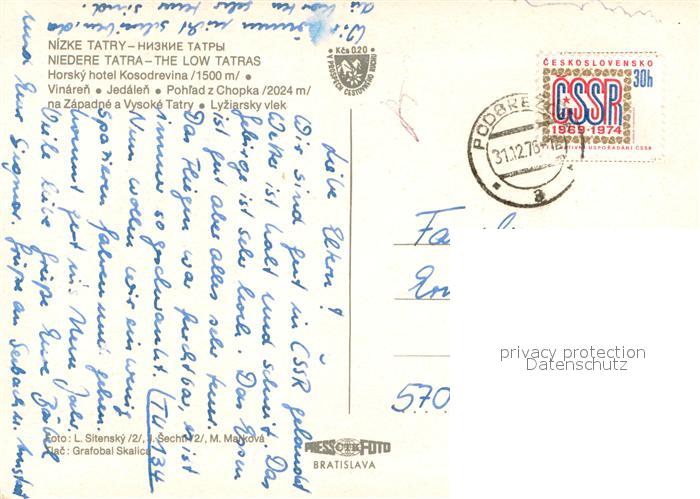 NÍZKE TATRY – НИЗКИЕ ТАТРЫ
NIEDERE TATRA – THE LOW TATRAS
Horský hotel Kosodrevina /1500 m/ •
Vináreň • Jedáleň • Pohľad z Chopka /2024 m/
na Západné a Vysoké Tatry • Lyžiarsky vlek
Kčs 0.20
V PROSPECH CESTOVNÉHO RUCHU
Liebe Eltern!
Wir sind gut in ČSSR gelandet
Wetter ist kalt und schneit. Das
Gebirge ist sehr hoch. Das Essen
ist gut aber alles sehr teuer.
Das Fliegen war furchtbar, es ist
immer so geschwankt. (TU 134
Nun wollen wir ein wenig
spazieren fahren und gehen.
kommt gut ins Neue Jahr.
Viele liebe Grüße Eure
und Euer Siegmar. Grüße an
ČESKOSLOVENSKO
30h
ČSSR
1969-1974
USPOŘÁDÁNÍ ČSSR
PODBRE
31.12.76
a
Fa
570
privacy protection
Datenschutz
Foto: L. Sitenský /2/, J. Šechtl /2/, M. Marková
Tlač: Grafobal Skalica
PRESSFOTO
BRATISLAVA